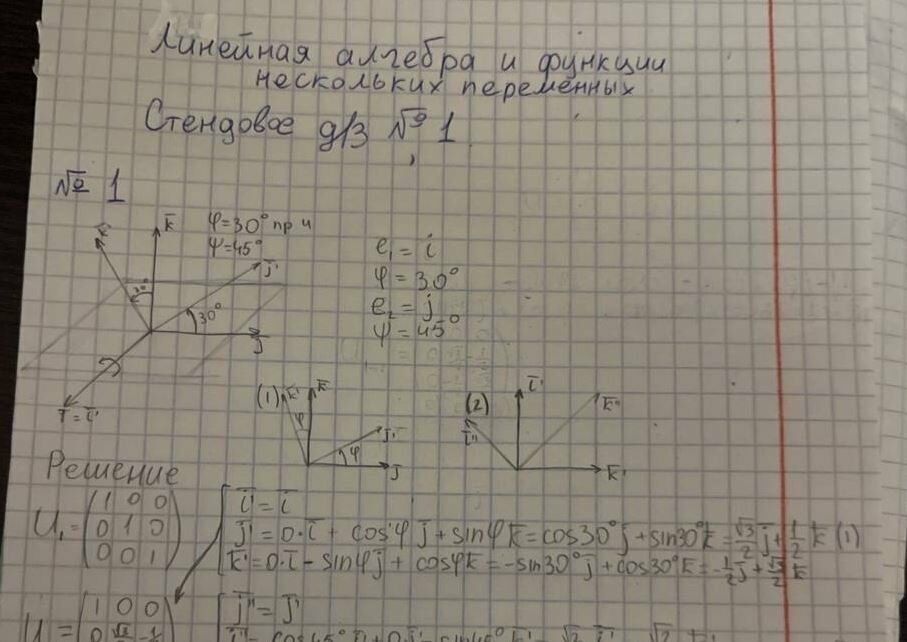 Линейная алгебра и функции
нескольких переменных
Стендовое д/з № 1
№ 1
k' k̄ φ=30° при
ψ=45°
j̄'
30°
j̄
ī = ī'
e₁ = i
φ = 30°
e₂ = j
ψ = 45°
(1) k̄' k̄
φ j̄'
φ
j̄
(2) ī' k̄''
ī''
k̄'
Решение
U₁ = (1 0 0
0 1 0
0 0 1)
ī' = ī
j̄' = 0·ī + cosφ j̄ + sinφ k̄ = cos30° j̄ + sin30° k̄ = √3/2 j̄ + 1/2 k̄ (1)
k̄' = 0·ī - sinφ j̄ + cosφ k̄ = -sin30° j̄ + cos30° k̄ = -1/2 j̄ + √3/2 k̄
U = (1 0 0
j̄'' = j̄'